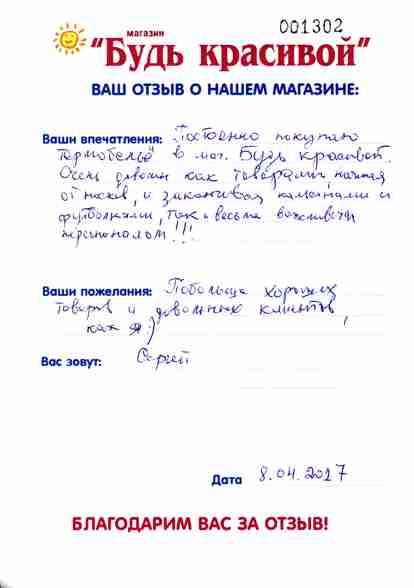 001302
магазин
"Будь красивой"
ВАШ ОТЗЫВ О НАШЕМ МАГАЗИНЕ:
Ваши впечатления: Постоенно покупаю
термобельё в маг. Будь красивой.
Очень доволен как товарами, начиная
от носков, и заканчивая кальсонами и
футболками, так и весьма вежливым
персоналом!!!
Ваши пожелания: Побольше хороших
товаров и довольных клиентов,
как я :)
Вас зовут: Сергей
Дата 8.04.2017
БЛАГОДАРИМ ВАС ЗА ОТЗЫВ!